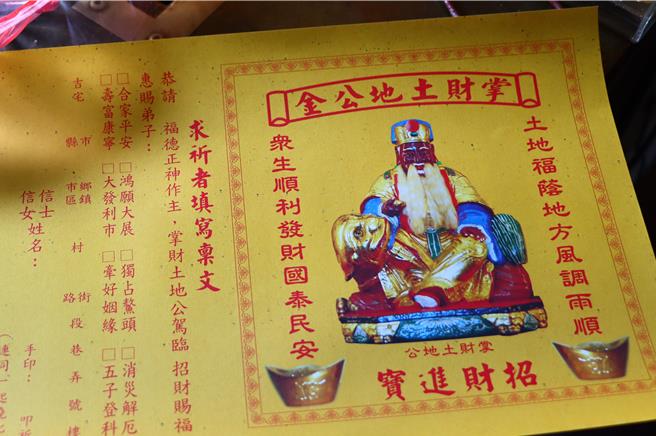 掌財土地公金
土地福蔭地方風調雨順
眾生順利發財國泰民安
掌財土地公
招財進寶
求祈者填寫稟文
恭請 福德正神作主,掌財土地公駕臨 招財賜福
惠賜弟子:
□合家平安 □鴻願大展 □獨占鰲頭 □消災解厄
□壽富康寧 □大發利市 □牽好姻緣 □五子登科
吉宅 市縣 鄉鎮市區 村 街路 段 巷 弄 號 樓
信士
信女 姓名: 手印: 叩祈
(連同一起